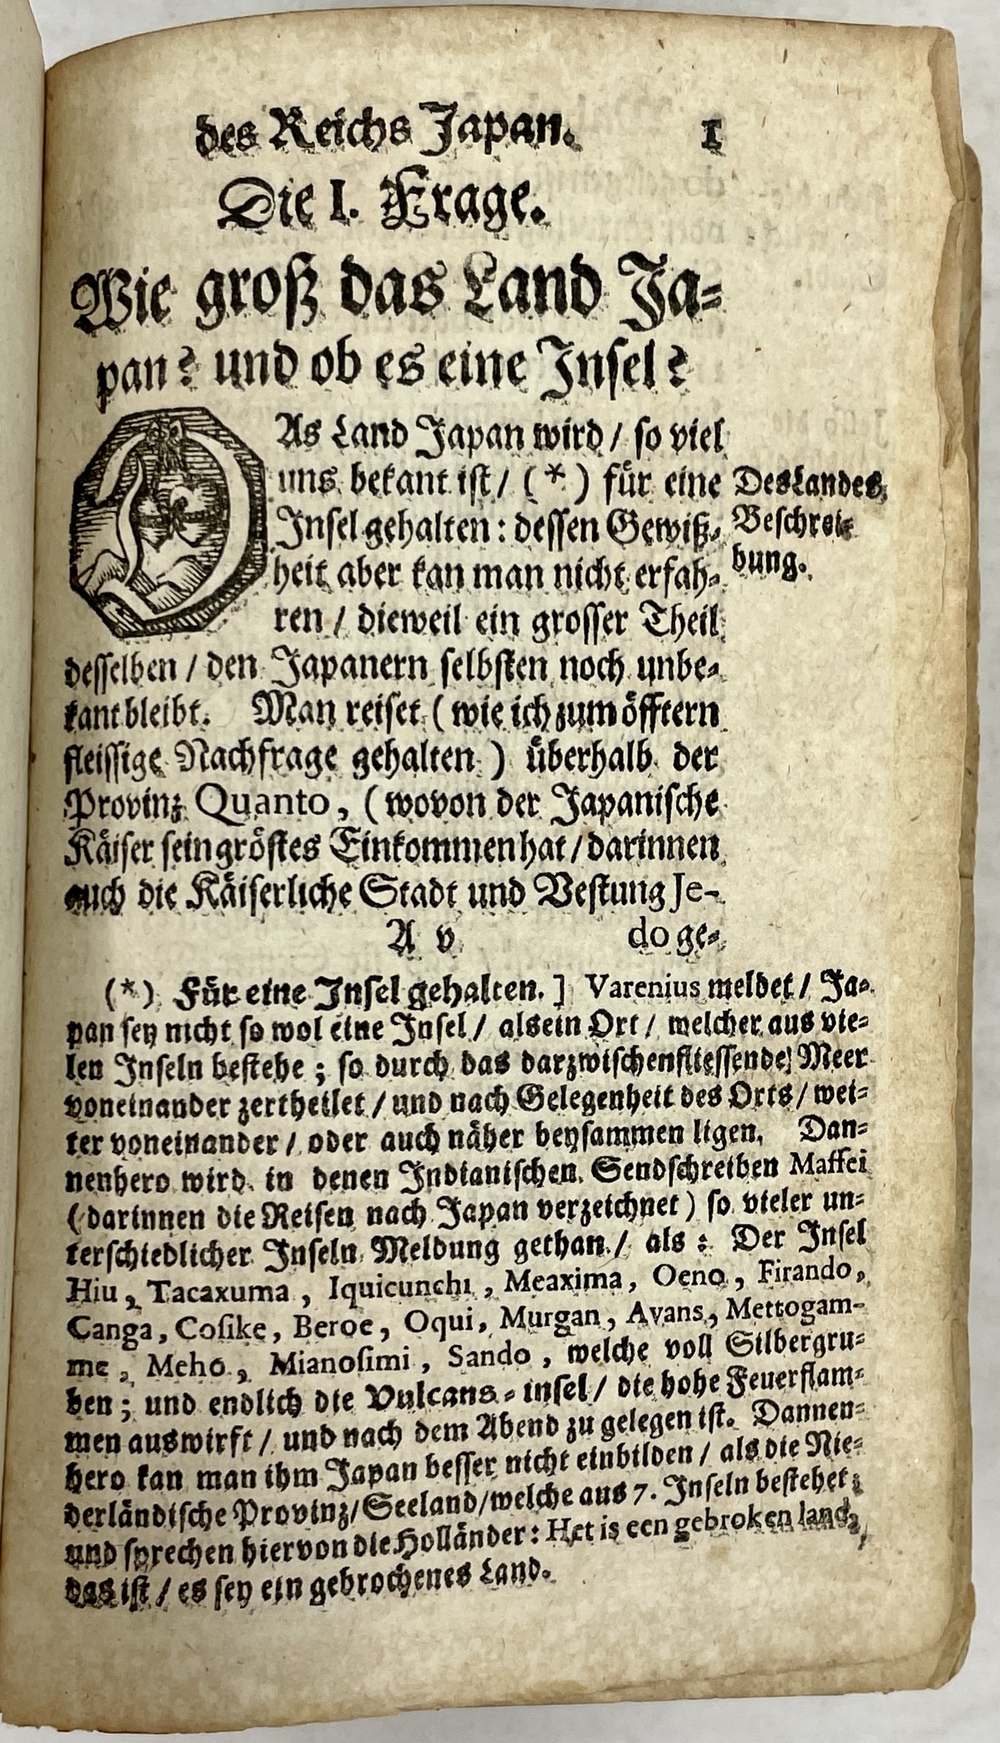 des Reichs Japan. 1
Die I. Frage.
Wie groß das Land Ja-
pan? und ob es eine Insel?
DAs Land Japan wird / so viel
uns bekant ist / (*) für eine
Insel gehalten: dessen Gewiß-
heit aber kan man nicht erfah-
ren / dieweil ein grosser Theil
desselben / den Japanern selbsten noch unbe-
kant bleibt. Man reiset (wie ich zum öfftern
fleissige Nachfrage gehalten) überhalb der
Provinz Quanto, (wovon der Japanische
Käiser sein gröstes Einkommen hat / darinnen
auch die Käiserliche Stadt und Vestung Je-
A v do ge-
Des Landes
Beschrei-
bung.
(*) Für eine Insel gehalten.] Varenius meldet / Ja-
pan sey nicht so wol eine Insel / als ein Ort / welcher aus vie-
len Inseln bestehe; so durch das darzwischenfliessende Meer
voneinander zertheilet / und nach Gelegenheit des Orts / wei-
ter voneinander / oder auch näher beysammen ligen. Dan-
nenhero wird in denen Indianischen Sendschreiben Maffei
(darinnen die Reisen nach Japan verzeichnet) so vieler un-
terschiedlicher Inseln Meldung gethan / als: Der Insel
Hiu, Tacaxuma, Iquicunchi, Meaxima, Oeno, Firando,
Canga, Cosike, Beroe, Oqui, Murgan, Avans, Mettogam-
me, Meho, Mianosimi, Sando, welche voll Silbergru-
ben; und endlich die Vulcans-insel / die hohe Feuerflam-
men auswirft / und nach dem Abend zu gelegen ist. Dannen-
hero kan man ihm Japan besser nicht einbilden / als die Nie-
derländische Provinz / Seeland / welche aus 7. Inseln bestehet;
und sprechen hiervon die Holländer: Het is een gebroken land,
das ist / es sey ein gebrochenes Land.